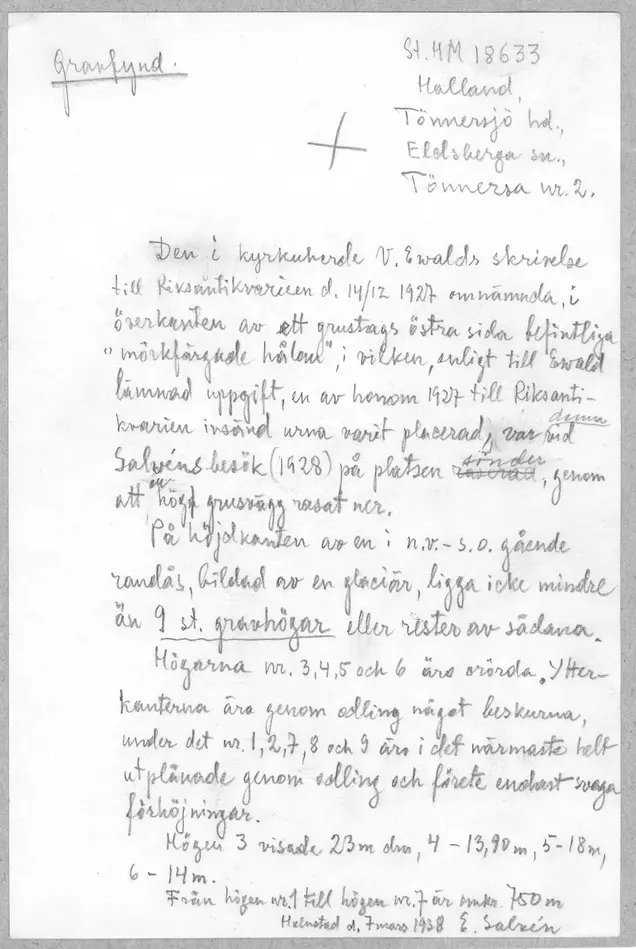 Gravfynd.
St. HM 18633
Halland,
Tönnersjö hd.,
Eldsberga sn.,
Tönnersa nr. 2.
Den i kyrkoherde V. Ewalds skrivelse
till Riksantikvarien d. 14/12 1927 omnämnda, i
överkanten av ett grustags östra sida befintliga
"mörkfärgade hålan", i vilken, enligt till Ewald
lämnad uppgift, en av honom 1927 till Riksanti-
kvarien insänd urna varit placerad, var denna vid
Salvéns besök (1928) på platsen raserad sönder, genom
att en hög grusvägg rasat ner.
På höjdkanten av en i n.v.-s.o. gående
randås, bildad av en glaciär, ligga icke mindre
än 9 st. gravhögar eller rester av sådana.
Högarna nr. 3, 4, 5 och 6 äro orörda. Ytter-
kanterna äro genom odling något beskurna,
under det nr. 1, 2, 7, 8 och 9 äro i det närmaste helt
utplånade genom odling och förete endast svaga
förhöjningar.
Högen 3 visade 23 m dm, 4 - 13,90 m, 5 - 18 m,
6 - 14 m.
Från högen nr. 1 till högen nr. 7 är omkr. 750 m
Halmstad d. 7 mars 1938 E. Salvén